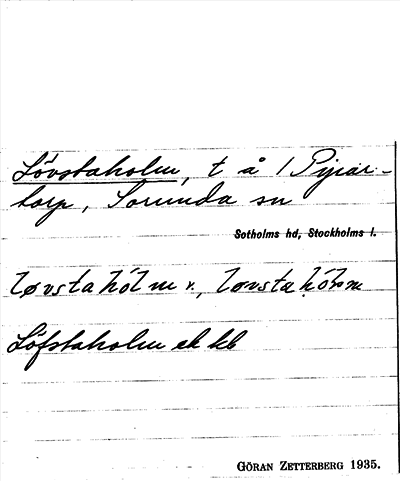 Lövstaholm, t å / Pyrar-
torp, Sorunda sn
Sotholms hd, Stockholms l.
løvstahòlm v., løvstahòlm
Löfstaholm ek kb
GÖRAN ZETTERBERG 1935.